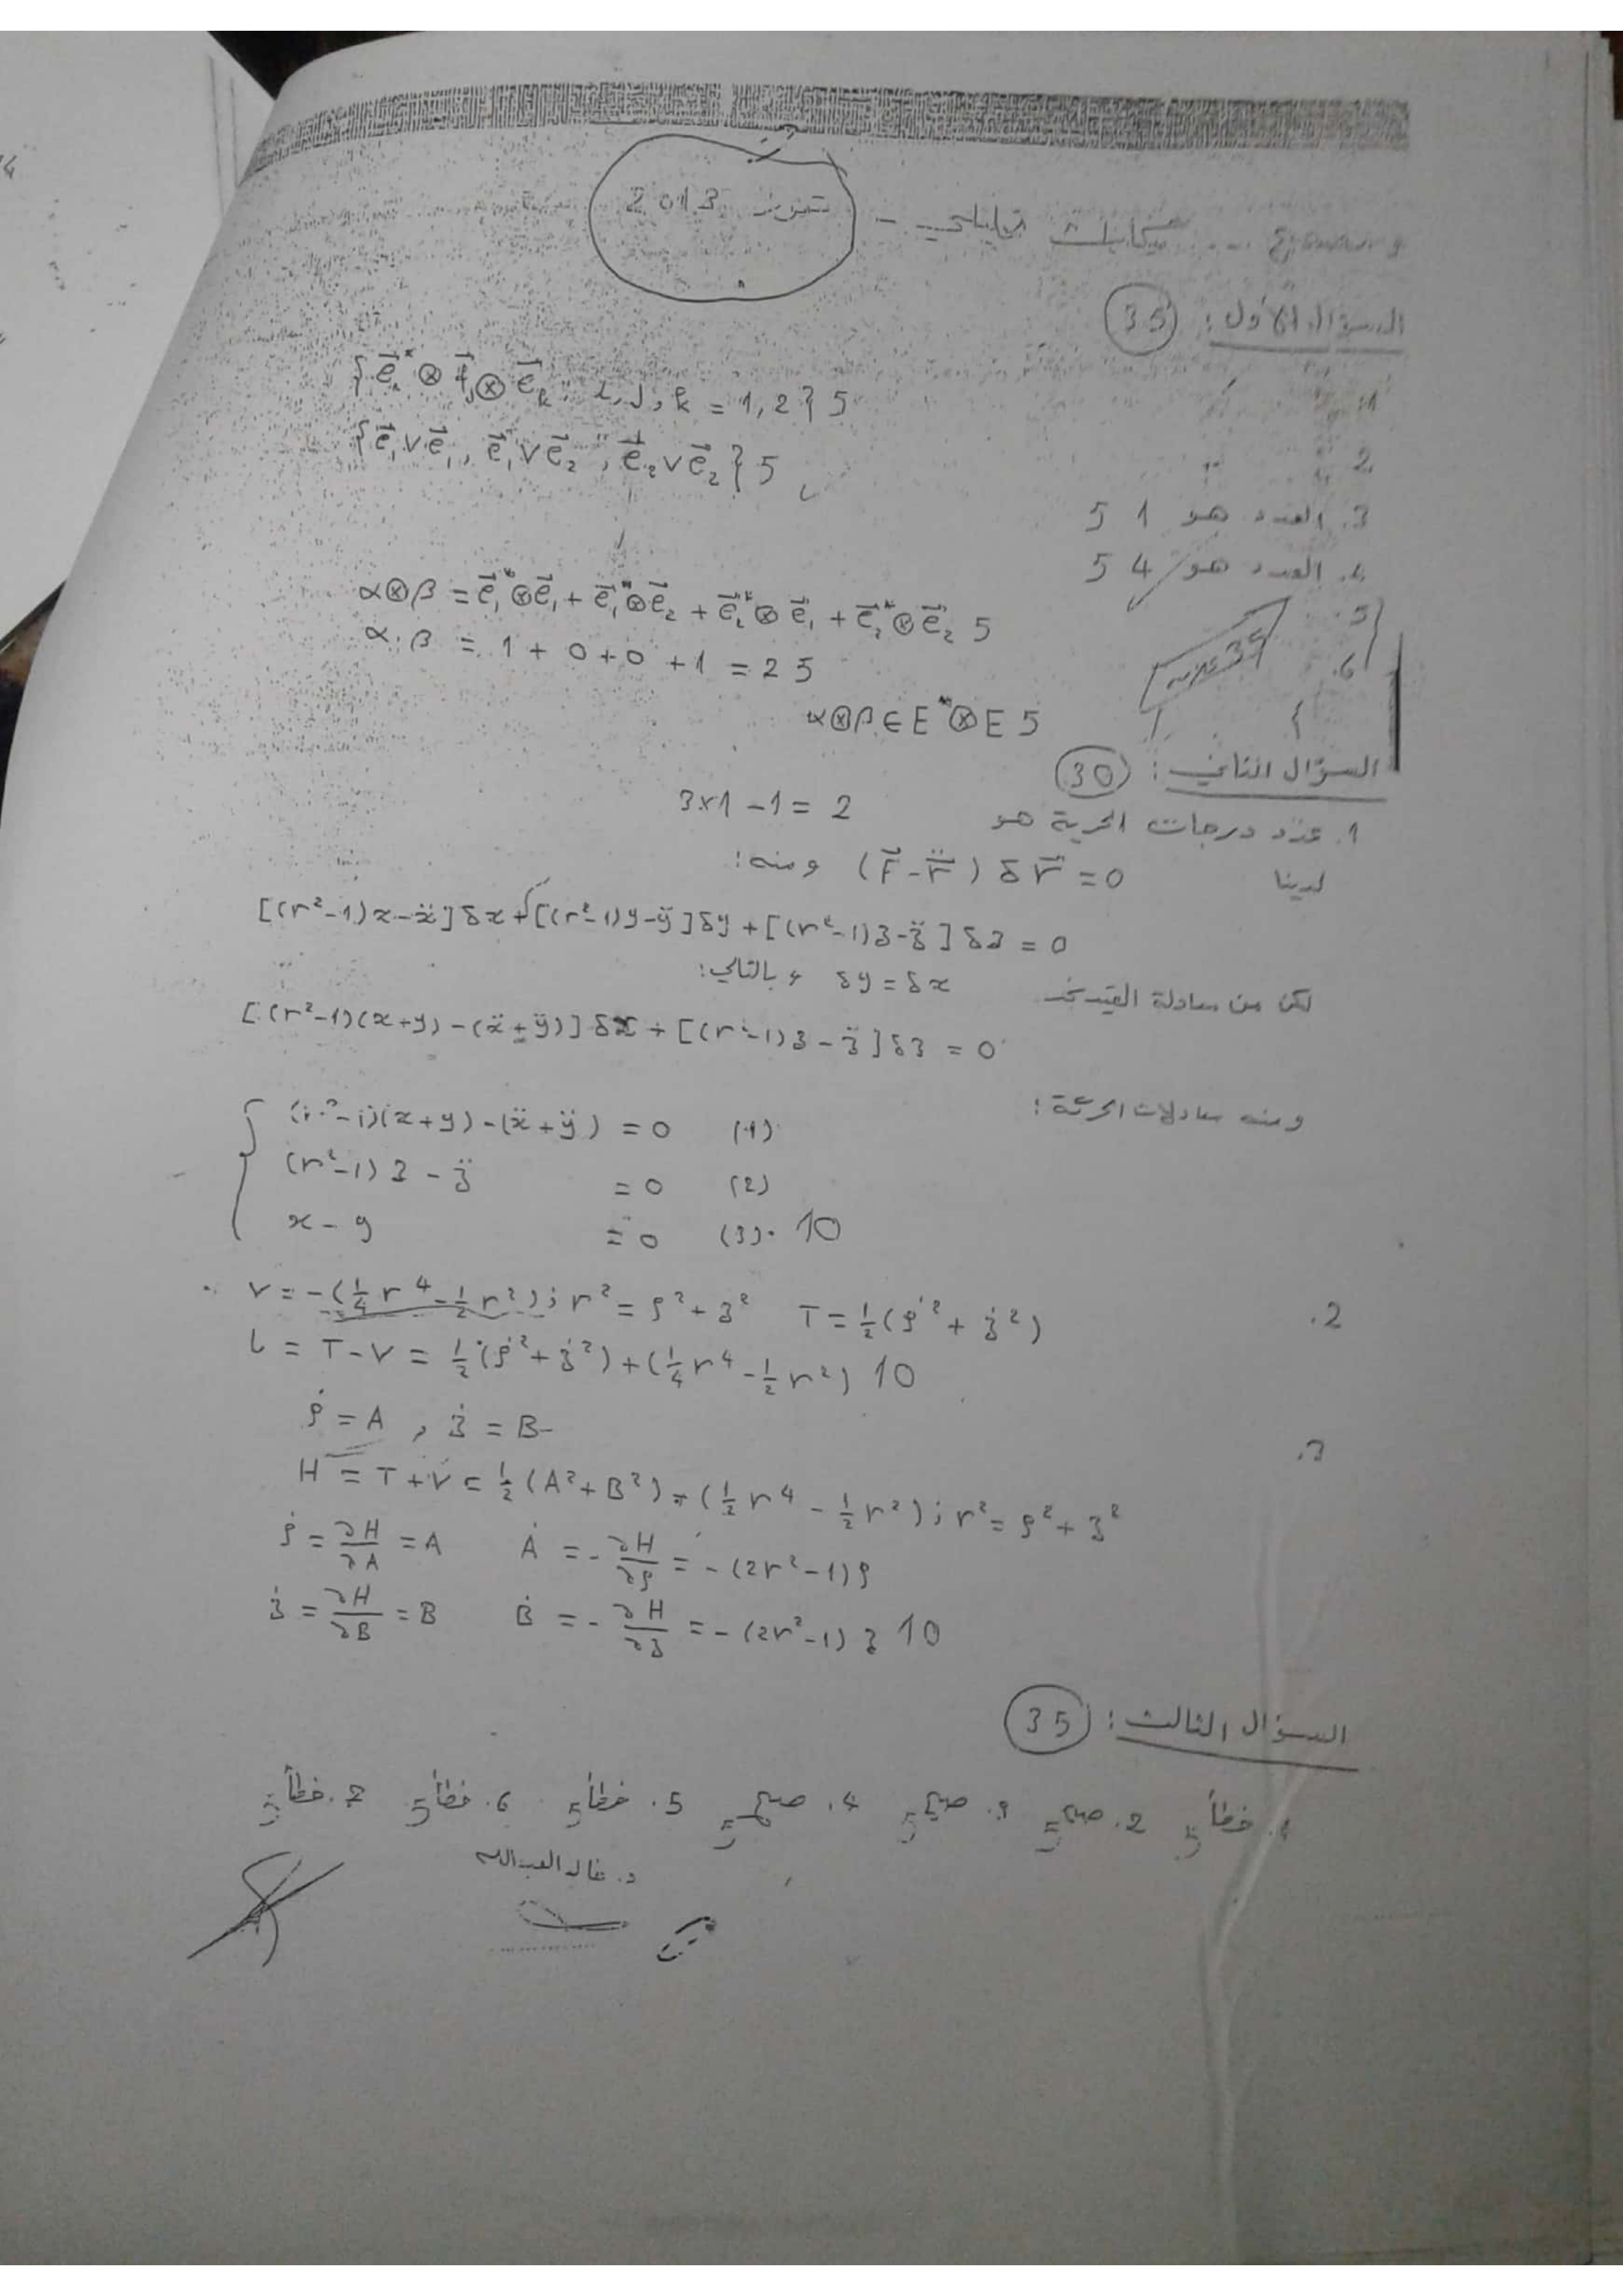 ميكانيك تحليلي - تموز 2013
السؤال الأول: (35)
1. {e⃗ᵢ* ⊗ f⃗ⱼ ⊗ e⃗ₖ, i, j, k = 1, 2} 5
2. {e⃗₁∨e⃗₁, e⃗₁∨e⃗₂, e⃗₂∨e⃗₂} 5
3. العدد هو 1 5
4. العدد هو 4 5
5. α⊗β = e⃗₁*⊗e⃗₁ + e⃗₁*⊗e⃗₂ + e⃗₂*⊗e⃗₁ + e⃗₂*⊗e⃗₂ 5
6. α.β = 1 + 0 + 0 + 1 = 2 5
α⊗β ∈ E*⊗E 5
السؤال الثاني: (30)
1. عدد درجات الحرية هو 3×1 - 1 = 2
لدينا (F⃗ - r̈⃗) δr⃗ = 0 ومنه:
[(r²-1)x-ẍ]δx + [(r²-1)y-ÿ]δy + [(r²-1)z-z̈]δz = 0
لكن من معادلة القيد نجد δy = δx وبالتالي:
[(r²-1)(x+y) - (ẍ+ÿ)]δx + [(r²-1)z - z̈]δz = 0
ومنه معادلات الحركة:
(r²-1)(x+y) - (ẍ+ÿ) = 0 (1)
(r²-1)z - z̈ = 0 (2)
x - y = 0 (3). 10
2. V = -(¼r⁴ - ½r²); r² = ρ² + z² T = ½(ρ̇² + ż²)
L = T - V = ½(ρ̇² + ż²) + (¼r⁴ - ½r²) 10
3. ρ̇ = A, ż = B
H = T + V = ½(A² + B²) + (½r⁴ - ½r²); r² = ρ² + z²
ρ̇ = ∂H/∂A = A Ȧ = -∂H/∂ρ = -(2r²-1)ρ
ż = ∂H/∂B = B Ḃ = -∂H/∂z = -(2r²-1)z 10
السؤال الثالث: (35)
1. خطأ 5 2. صح 5 3. صح 5 4. صح 5 5. خطأ 5 6. خطأ 5 7. خطأ 5
د. خالد العبدالله